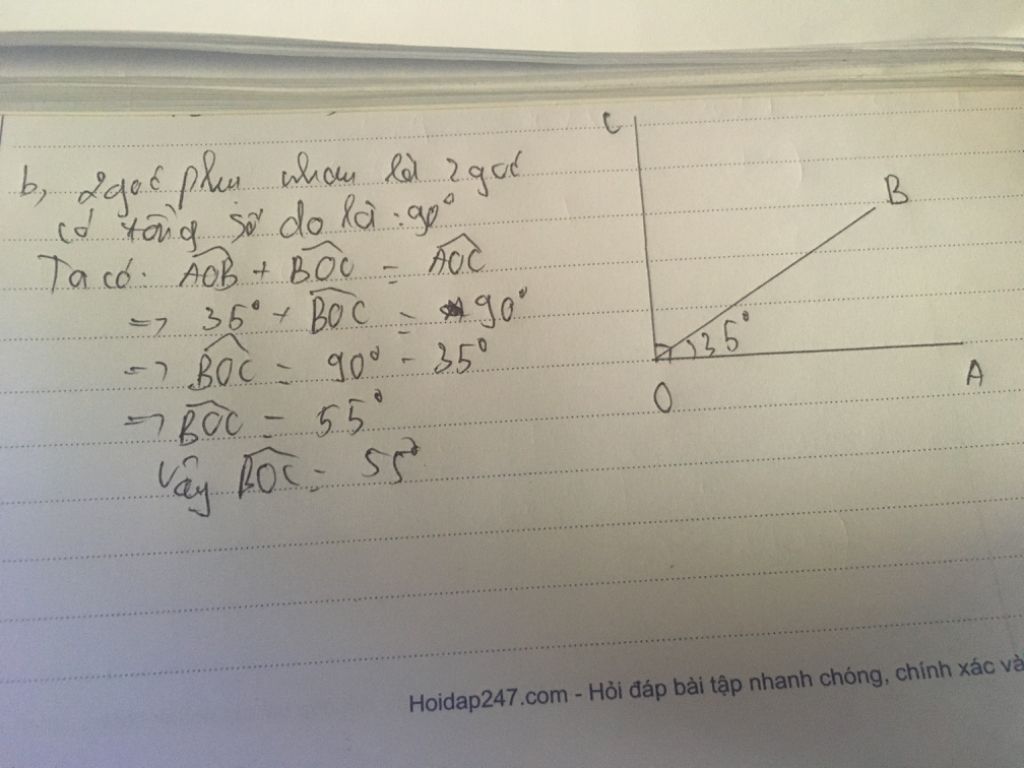 b, 2 góc phụ nhau là 2 góc
có tổng số đo là : 90°
Ta có: AOB + BOC = AOC
=> 35° + BOC = 90°
=> BOC = 90° - 35°
=> BOC = 55°
Vậy BOC = 55°
C
B
35°
O
A
Hoidap247.com - Hỏi đáp bài tập nhanh chóng, chính xác và